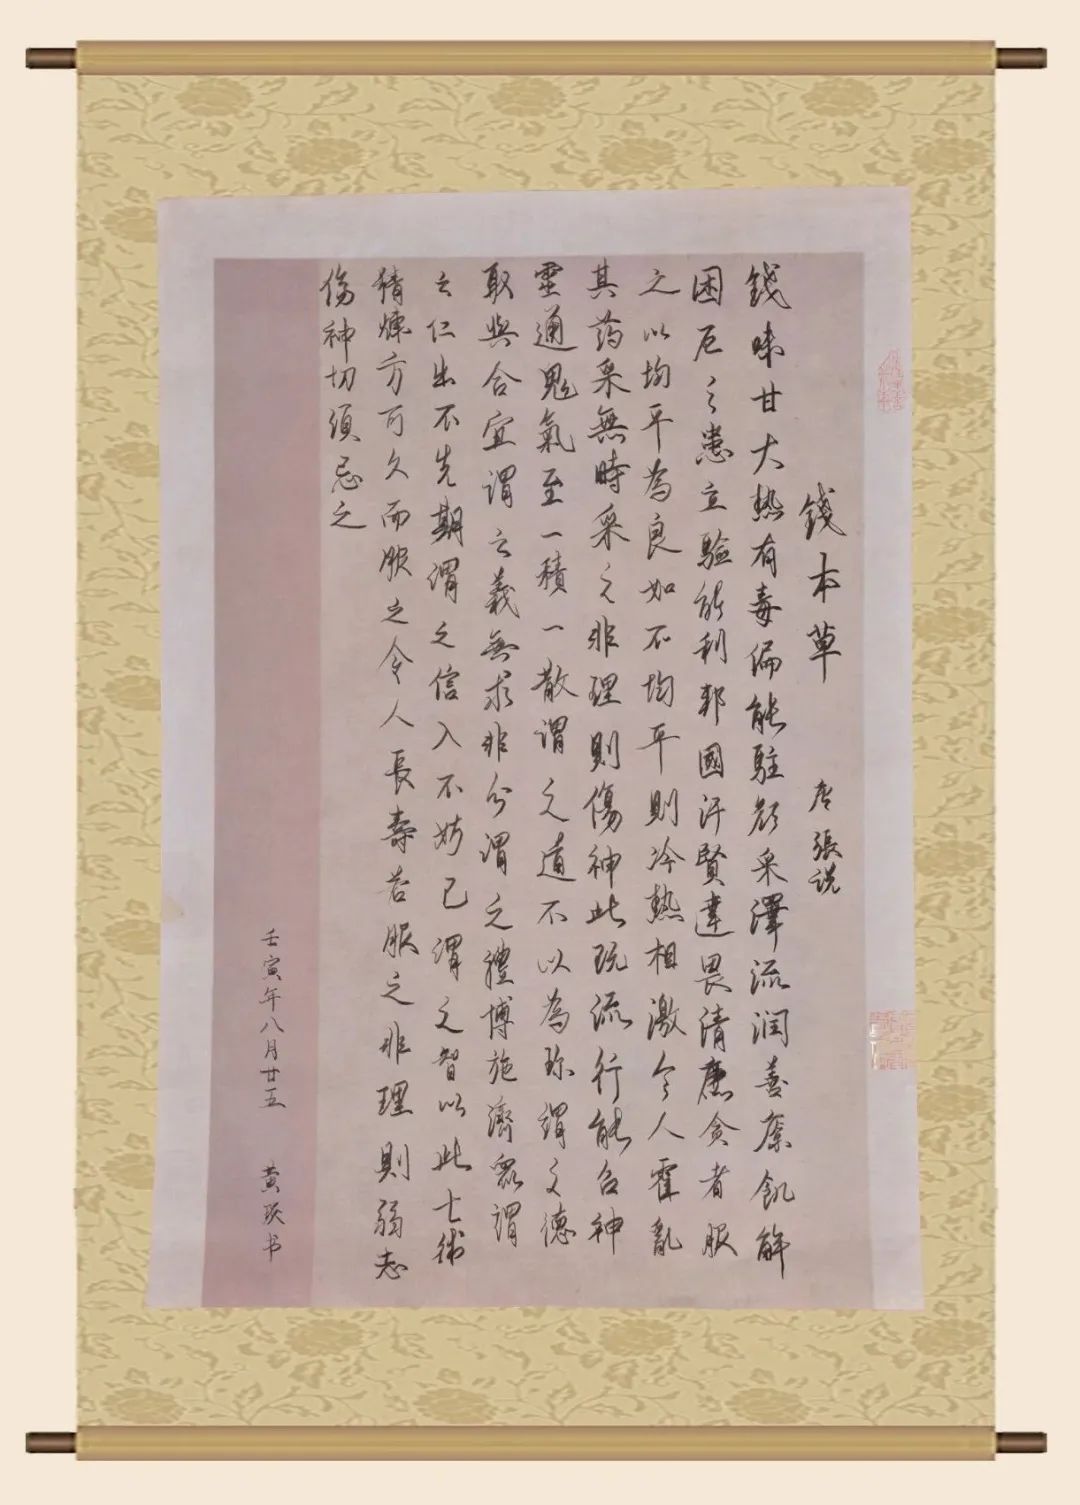 錢本草 唐 張説
錢味甘大热有毒偏能駐颜采澤流润善療飢解
困厄之患立驗能利邦國汙賢達畏清廉贪者服
之以均平為良如不均平則冷熱相激令人霍亂
其药采無時采之非理則傷神此既流行能召神
靈通鬼氣至一積一散謂之道不以為珍謂之德
取與合宜謂之義無求非分謂之禮博施濟眾謂
之仁出不失期謂之信入不妨己謂之智以此七術
精煉方可久而服之令人長壽若服之非理則弱志
傷神切須忌之
壬寅年八月廿五 黄 书